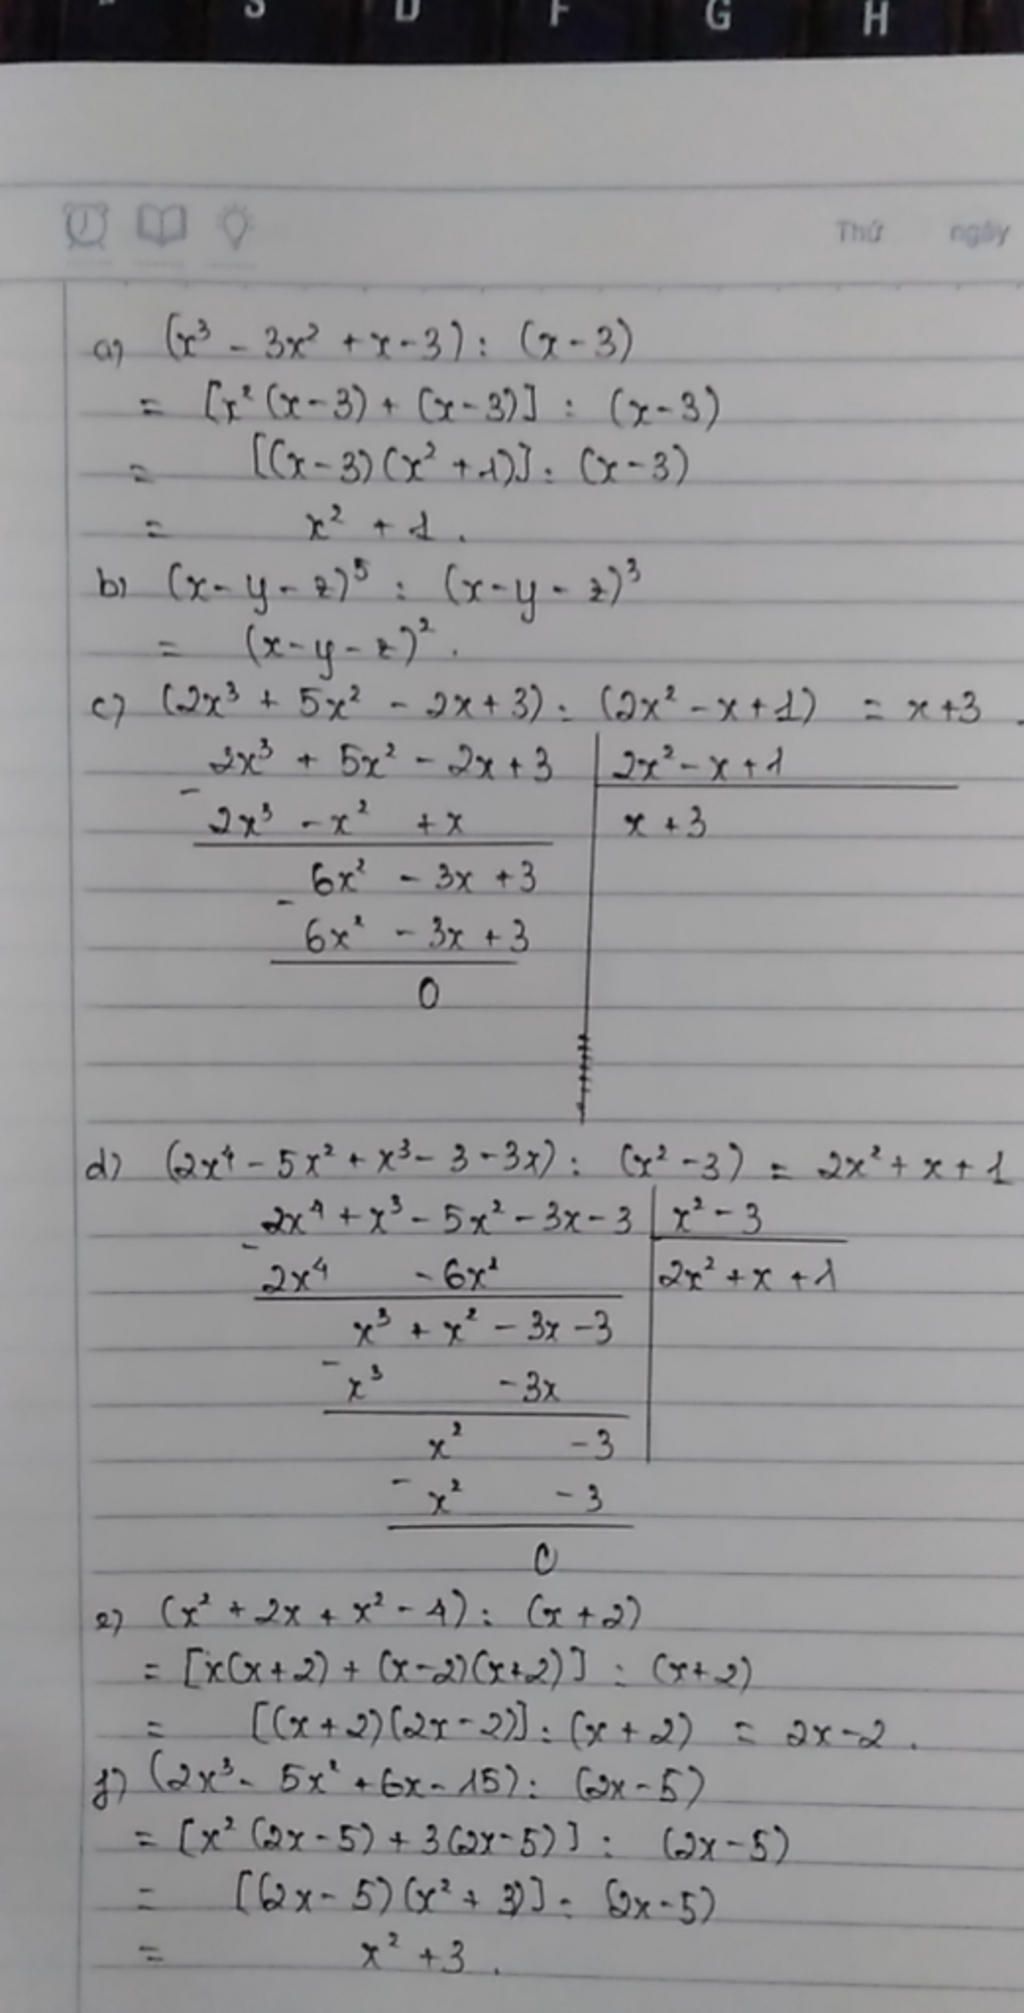 S D F G H
Thứ ngày
a) (x³ - 3x² + x - 3) : (x - 3)
= [x² (x - 3) + (x - 3)] : (x - 3)
= [(x - 3) (x² + 1)] : (x - 3)
= x² + 1 .
b) (x - y - z)⁵ : (x - y - z)³
= (x - y - z)² .
c) (2x³ + 5x² - 2x + 3) : (2x² - x + 1) = x + 3 .
2x³ + 5x² - 2x + 3 | 2x² - x + 1
- 2x³ - x² + x | x + 3
6x² - 3x + 3
- 6x² - 3x + 3
0
d) (2x⁴ - 5x² + x³ - 3 - 3x) : (x² - 3) = 2x² + x + 1
2x⁴ + x³ - 5x² - 3x - 3 | x² - 3
- 2x⁴ - 6x² | 2x² + x + 1
x³ + x² - 3x - 3
- x³ - 3x
x² - 3
- x² - 3
0
e) (x² + 2x + x² - 4) : (x + 2)
= [x(x + 2) + (x - 2)(x + 2)] : (x + 2)
= [(x + 2)(2x - 2)] : (x + 2) = 2x - 2 .
f) (2x³ - 5x² + 6x - 15) : (2x - 5)
= [x² (2x - 5) + 3(2x - 5)] : (2x - 5)
= [(2x - 5) (x² + 3)] : (2x - 5)
= x² + 3 .